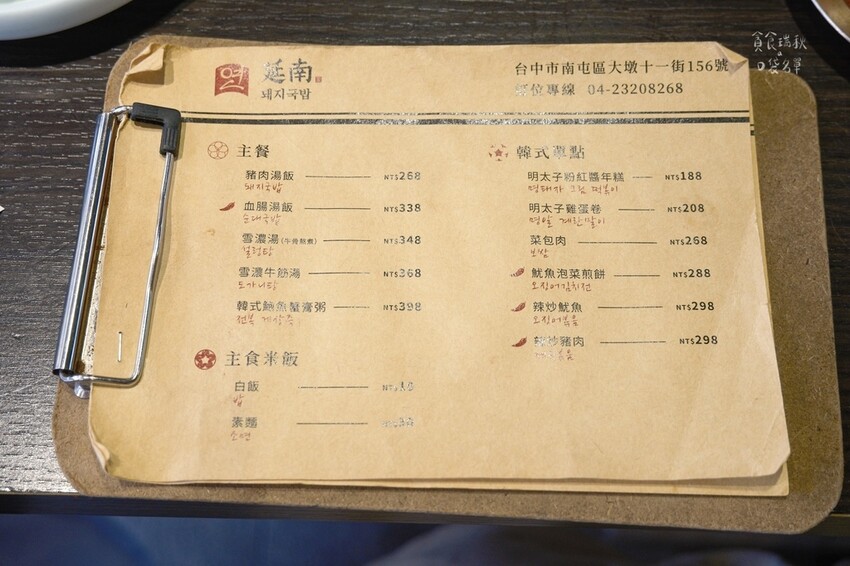 延南
돼지국밥
台中市南屯區大墩十一街156號
訂位專線 04-23208268
主餐
豬肉湯飯 NT$268
돼지국밥
血腸湯飯 NT$338
순대국밥
雪濃湯(牛骨熬煮) NT$348
설렁탕
雪濃牛筋湯 NT$368
도가니탕
韓式鮑魚蟹膏粥 NT$398
전복 게살죽
主食米飯
白飯
밥
素麵
소면
韓式單點
明太子粉紅醬年糕 NT$188
명태자 크림 떡볶이
明太子雞蛋卷 NT$208
계란말이
菜包肉 NT$268
보쌈
魷魚泡菜煎餅 NT$288
오징어김치전
辣炒魷魚 NT$298
오징어볶음
辣炒豬肉 NT$298
貪食瑞秋
口袋名單